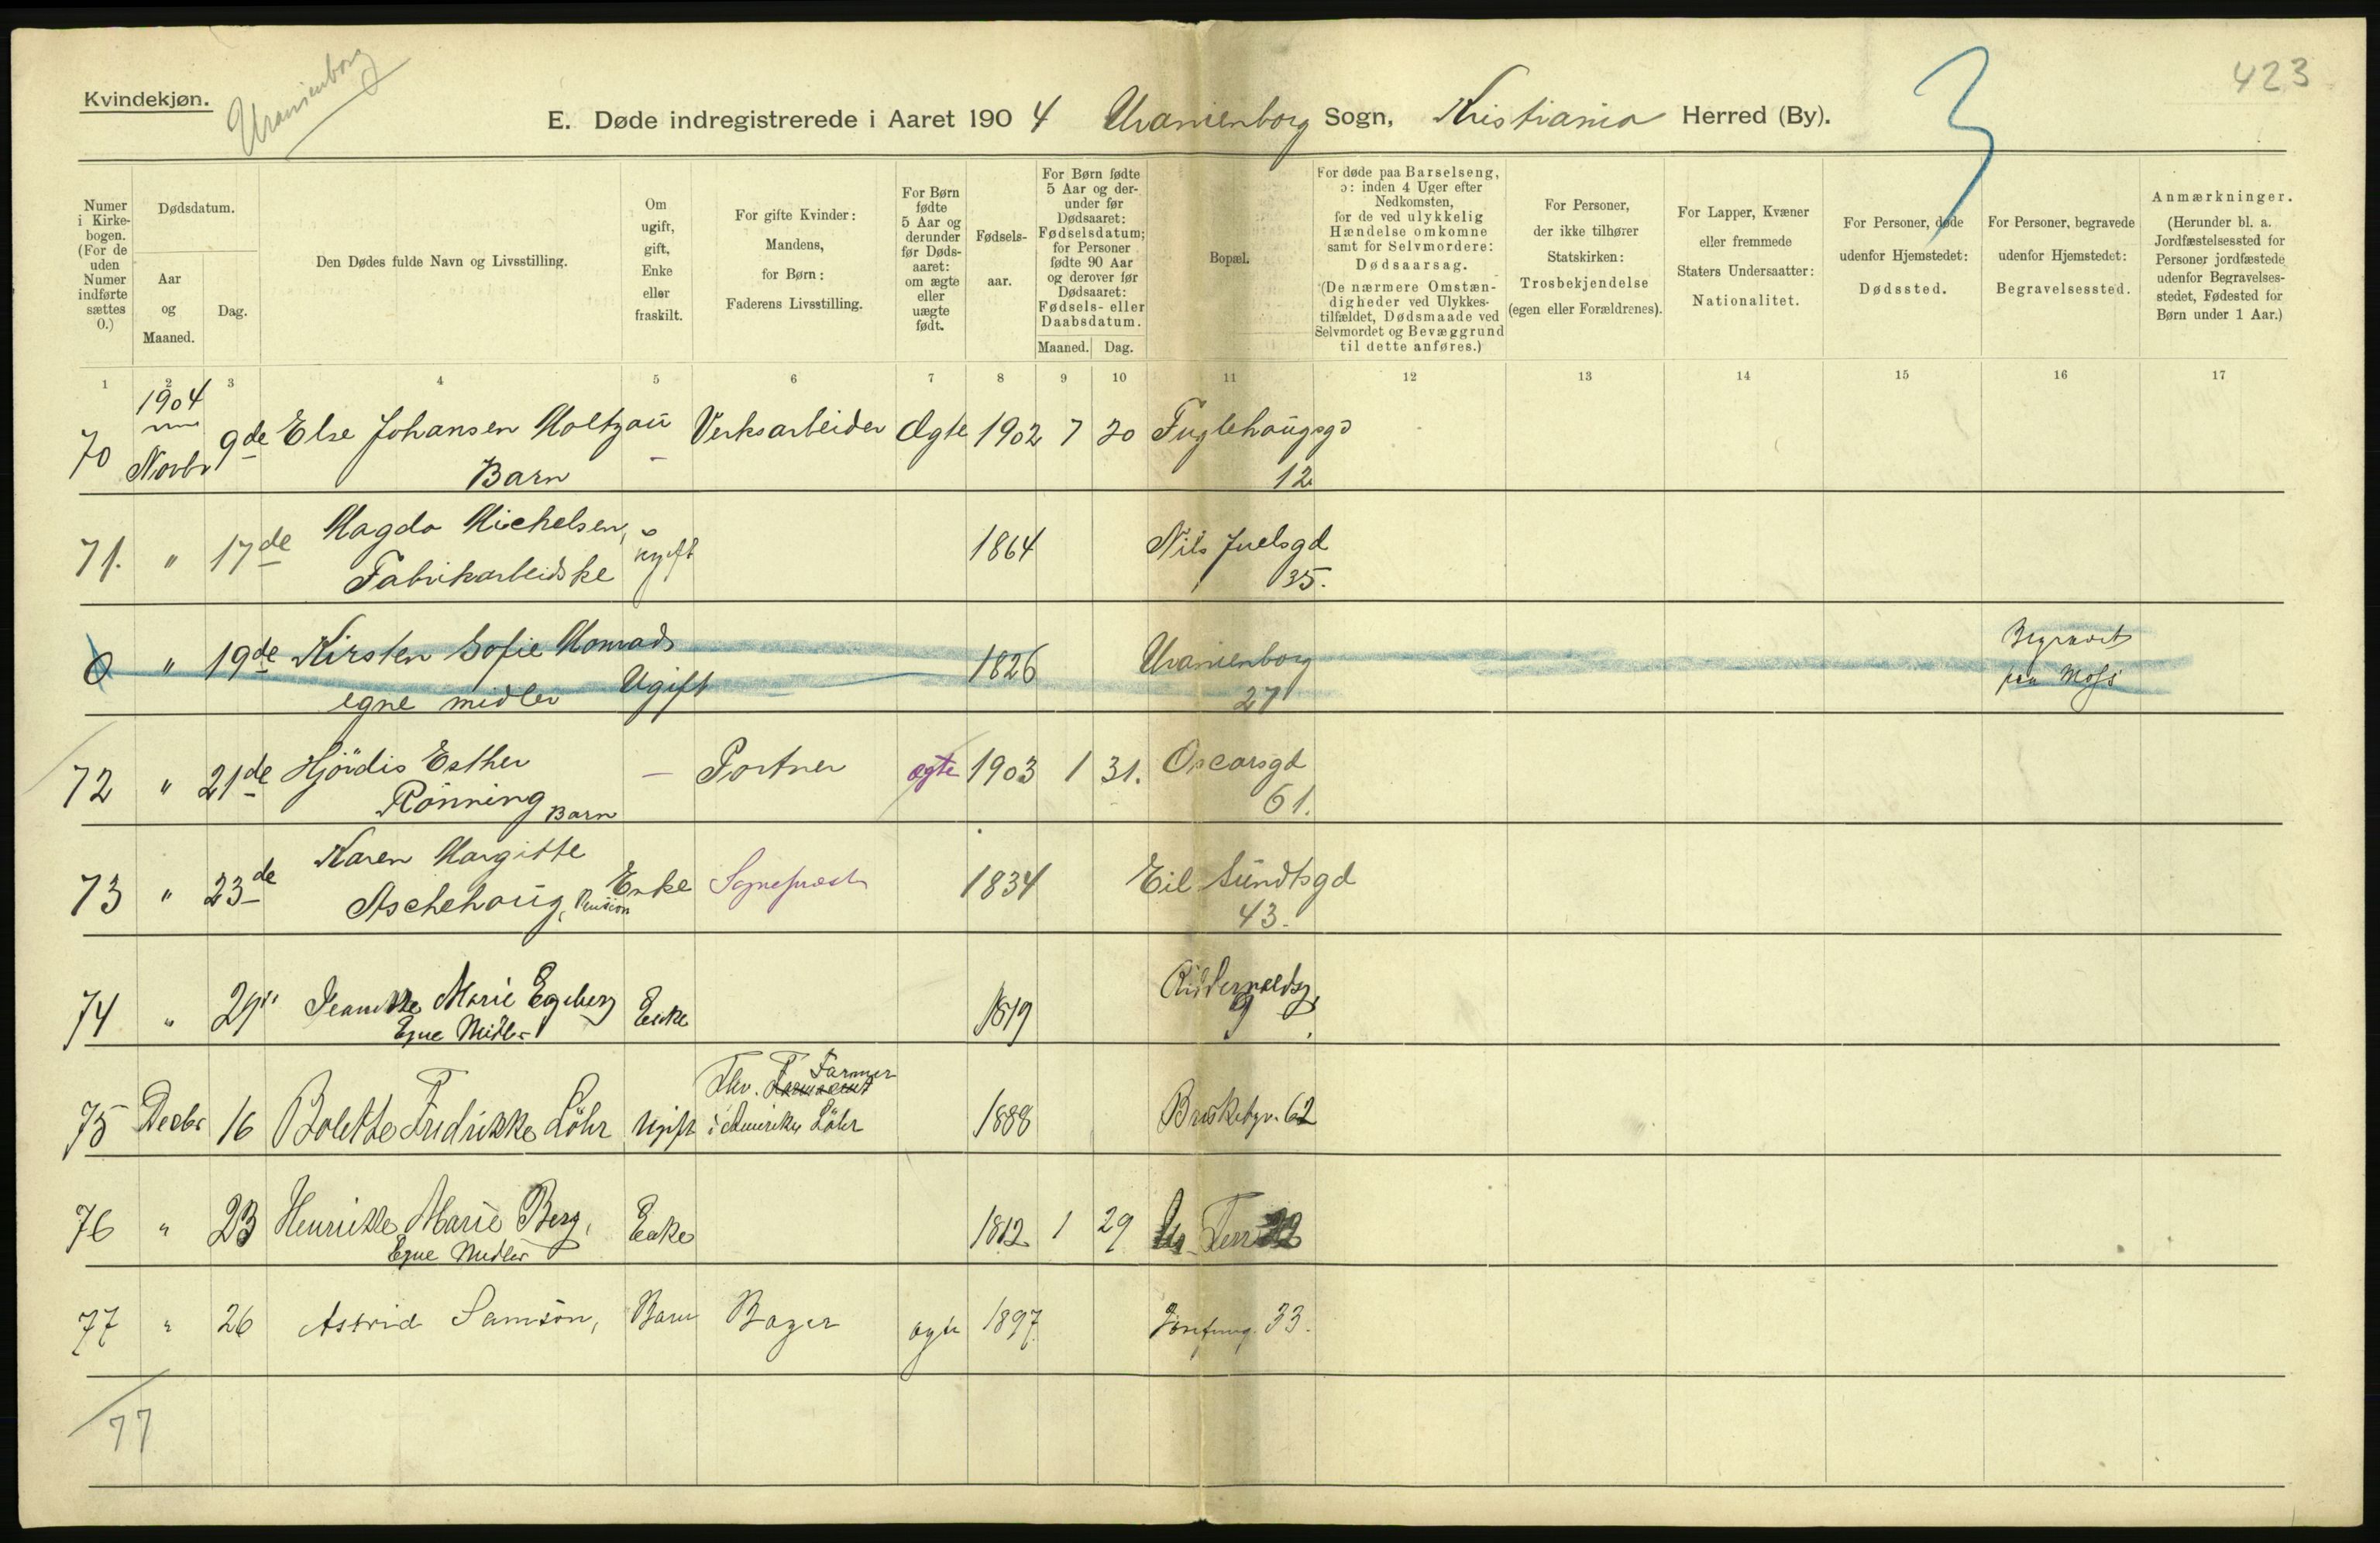 Kvindekjøn.
Uranienborg
E. Døde indregistrerede i Aaret 1904 Uranienborg Sogn, Kristiania Herred (By).
3
423
Numer i Kirkebogen. (For de uden Numer indførte sættes 0.)
Dødsdatum.
Aar og Maaned.
Dag.
Den Dødes fulde Navn og Livsstilling.
Om ugift, gift, Enke eller fraskilt.
For gifte Kvinder: Mandens, for Børn: Faderens Livsstilling.
For Børn fødte 5 Aar og derunder før Dødsaaret: om ægte eller uægte født.
Fødselsaar.
For Børn fødte 5 Aar og derunder før Dødsaaret: Fødselsdatum; for Personer fødte 90 Aar og derover før Dødsaaret: Fødsels- eller Daabsdatum.
Maaned. Dag.
Bopæl.
For døde paa Barselseng, ɔ: inden 4 Uger efter Nedkomsten, for de ved ulykkelig Hændelse omkomne samt for Selvmordere: Dødsaarsag. (De nærmere Omstændigheder ved Ulykkestilfældet, Dødsmaade ved Selvmordet og Bevæggrund til dette anføres.)
For Personer, der ikke tilhører Statskirken: Trosbekjendelse (egen eller Forældrenes).
For Lapper, Kvæner eller fremmede Staters Undersaatter: Nationalitet.
For Personer, døde udenfor Hjemstedet: Dødssted.
For Personer, begravede udenfor Hjemstedet: Begravelsessted.
Anmærkninger. (Herunder bl. a. Jordfæstelsessted for Personer jordfæstede udenfor Begravelsesstedet, Fødested for Børn under 1 Aar.)
1 2 3 4 5 6 7 8 9 10 11 12 13 14 15 16 17
1904
70 Novbr 9de Else Johansen Moltzau Verksarbeider Ægte 1902 7 20 Fuglehaugsgd
Barn - 12
71. " 17de Magda Michelsen, ugift 1864 Nils Juelsgd
Fabrikarbeidske 35.
0 " 19de Kirsten Sofie Monrad 1826 Uranienborg Begravet
egne midler Ugift 27 paa Moss
72 " 21de Hjördis Esther - Portner ægte 1903 1 31. Oscarsgd
Rönning Barn 61.
73 " 23de Karen Margitte Enke Sogneprest 1834 Eil Sundtsgd
Aschehoug, Pension 43.
74 " 29 Marie Egeberg Enke 1819 Riddervoldsg.
Egne Midler 9
Farmer
75 Decbr 16 Bolette Fredrikke Löhr ugift i Amerika Löhr 1888 Briskebyv. 62
76 " 23 Henrikke Marie Berg, Enke 1812 1 29 Ur. Terr 22
Egne Midler
77 " 26 Astrid Samson, Barn Bager ægte 1897 Josefinesg. 33.
77